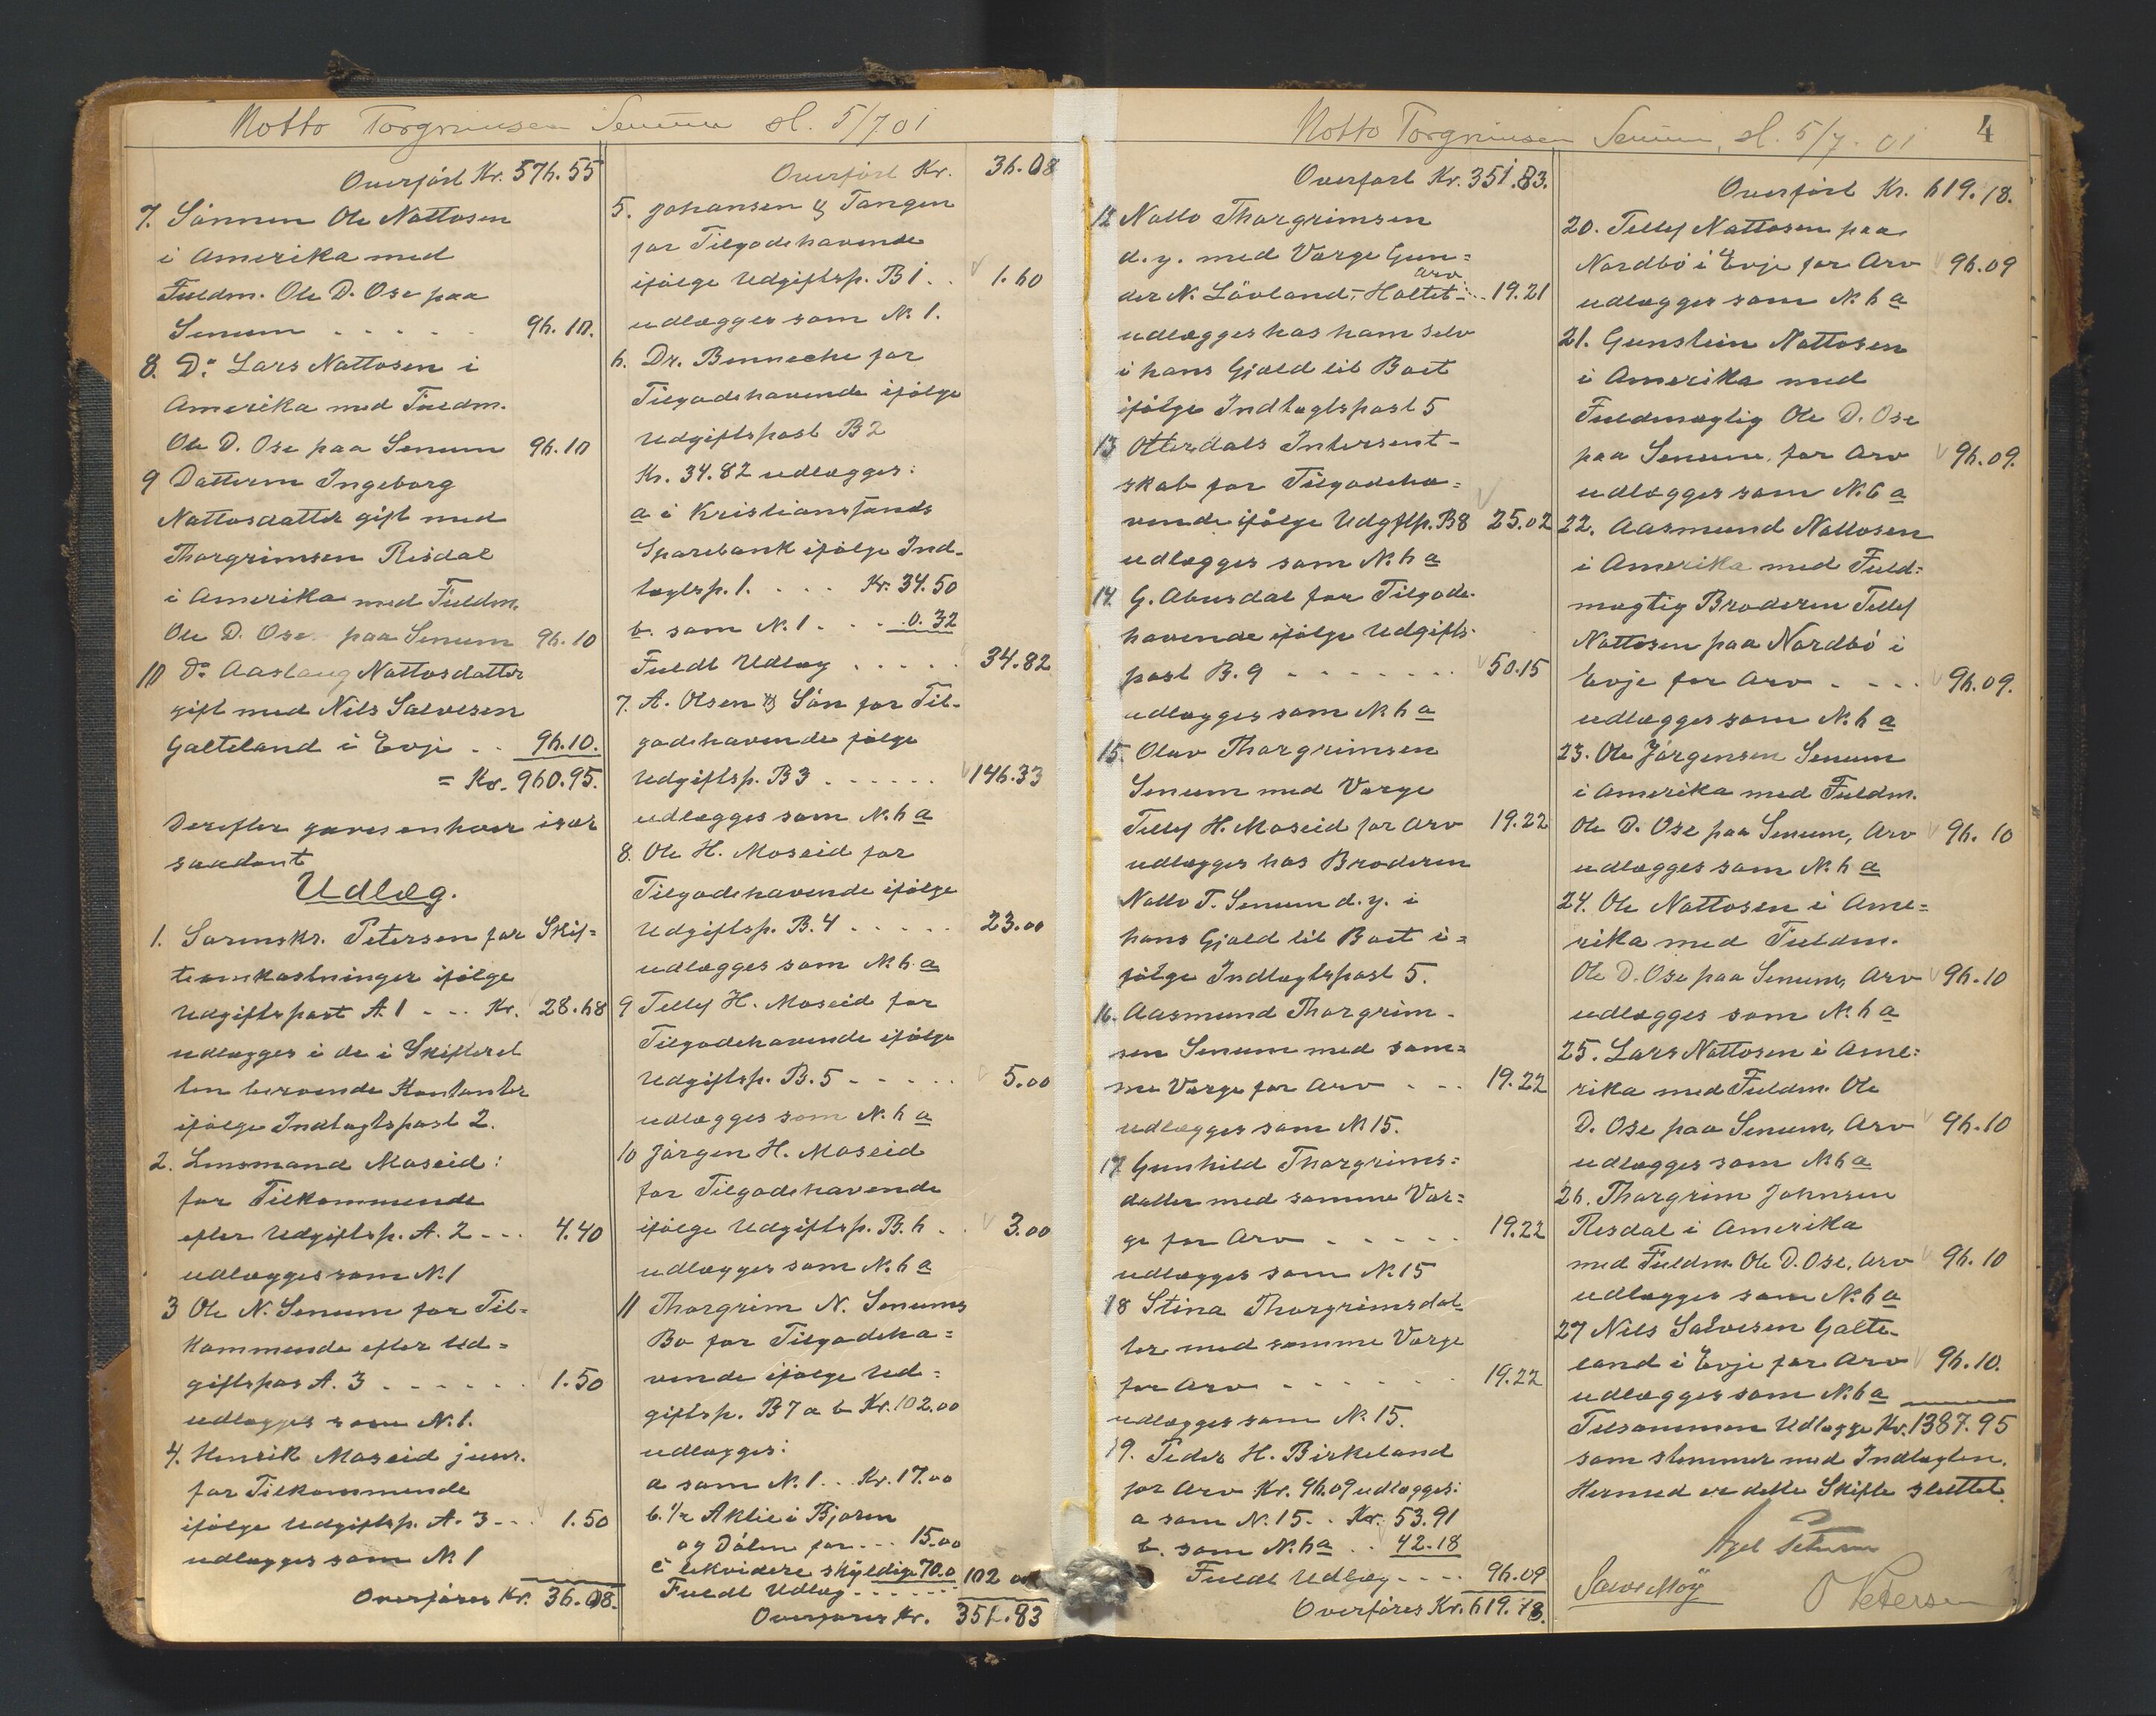 Notto Torgrimsen Senum sl. 5/7 01
Overført Kr. 576.55
7. Sønnen Ole Nottosen
i Amerika med
Fuldm. Ole D. Ose paa
Senum . . . . . 96.10.
8. Do Lars Nottosen i
Amerika med Fuldm.
Ole D. Ose paa Senum 96.10
9 Datteren Ingeborg
Nottosdatter gift med
Thorgrimsen Risdal
i Amerika med Fuldm.
Ole D. Ose paa Senum 96.10
10 Do Aaslaug Nottosdatter
gift med Nils Salvesen
Galteland i Evje . . 96.10.
= Kr. 960.95.
Derefter gaves enhver især
saadant
Udlæg.
1. Sorenskr. Petersen for Skif=
teomkostninger ifølge
Udgiftspost A.1 - - . Kr. 28.68
udlægges i de i Skifteret
ten beroende Kontanter
ifølge Indtægtspost 2.
2. Lensmand Moseid:
for Tilkommende
efter Udgiftsp. A. 2 - - . 4.40
udlægges som N.1
3 Ole N. Senum for Til=
kommende efter Ud=
giftspos A. 3 . - - - - . 1.50
udlægges som N.1.
4. Henrik Moseid junr.
for Tilkommende
ifølge Udgiftsp. A. 3 - - . 1.50
udlægges som N.1
Overføres Kr. 36.08.
Overført Kr. 36.08
5. Johansen & Tangen
for Tilgodehavende
ifølge Udgiftsp. B1 . . 1.60
udlægges som N. 1.
6. Dr. Benneche for
Tilgodehavende ifølge
Udgiftspost B2
Kr. 34.82 udlægges:
a i Kristianssands
Sparebank ifølge Ind-
tægtsp. 1. . . . Kr. 34.50
b. som N. 1 . . . 0.32
Fuldt Udlæg . . . . . 34.82
7. A. Olsen & Søn for Til-
godehavende følge
Udgiftsp. B3 . . . . . . 146.33
udlægges som N. 6 a
8. Ole H. Moseid for
Tilgodehavende ifølge
Udgiftsp. B. 4 . . . . . 23.00
udlægges som N. 6 a
9 Tellef H. Moseid for
Tilgodehavende ifølge
Udgiftsp. B. 5 - - - . . 5.00
udlægges som N. 6 a
10 Jørgen H. Moseid
for Tilgodehavende
ifølge Udgiftsp. B. 6 . . 3.00
udlægges som N. 6 a
11 Thorgrim N. Senums
Bo for Tilgodeha=
vende ifølge Ud=
giftsp. B 7 a b Kr. 102.00
udlægges:
a som N. 1 . . Kr. 17.00
b. 1/2 Aktie i Bjoren
og Dølen for . . . 15.00
c likvidere skyldige 70.0 102 00
Fuldt Udlæg . . . . . .
Overføres Kr. 351.83
Notto Torgrimsen Senum, sl. 5/7. 01
4
Overført Kr. 351.83.
12 Notto Thorgrimsen
d. y. med Værge Gun=
arv
der N. Løvland, Holtet . . . 19.21
udlægges hos ham selv
i hans Gjæld til Boet
ifølge Indtægtspost 5
13 Otterdals Interesent-
skab for Tilgodeha=
vende ifølge Udgftsp. B8 25.02
udlægges som N. 6 a
14. G. Abusdal for Tilgode-
havende ifølge Udgifts-
post B. 9 - - - - - . . 50.15
udlægges som N. 6 a
15. Olav Thorgrimsen
Senum med Værge
Tellef H. Moseid for Arv 19.22
udlægges hos Broderen
Notto T. Senum d. y. i
hans Gjæld til Boet i=
følge Indtægtspost 5.
16. Aasmund Thorgrim-
sen Senum med sam=
me Værge for Arv . - - . 19.22
udlægges som N 15.
17. Gunhild Thorgrims=
datter med samme Vær=
ge for Arv - - - - - . 19.22
udlægges som N. 15
18 Stina Thorgrimsdat-
ter med samme Værge
for Arv - - - - - - . 19.22
udlægges som N. 15.
19. Peder H. Birkeland
for Arv Kr. 96.09 udlægges:
a som N. 15. . Kr. 53.91
b. som N. 6 a . . 42.18
Fuldt Udlæg - - - . 96.09
Overføres Kr. 619.18.
Overført Kr. 619.18.
20. Tellef Nottosen paa
Nordbø i Evje for Arv 96.09
udlægges som N. 6 a
21. Gunstein Nottosen
i Amerika med
Fuldmægtig Ole D. Ose
paa Senum, for Arv 96.09.
udlægges som N. 6 a
22. Aasmund Nottosen
i Amerika med Fuld=
mægtig Broderen Tellef
Nottosen paa Nordbø i
Evje for Arv . - - . 96.09.
udlægges som N. 6 a
23. Ole Jørgensen Senum
i Amerika med Fuldm.
Ole D. Ose paa Senum, Arv 96.10
udlægges som N. 6 a
24. Ole Nottosen i Ame=
rika med Fuldm.
Ole D. Ose paa Senum, Arv 96.10
udlægges som N. 6 a
25. Lars Nottosen i Ame=
rika med Fuldm. Ole
D. Ose paa Senum, Arv 96.10
udlægges som N. 6 a
26. Thorgrim Johnsen
Risdal i Amerika
med Fuldm. Ole D. Ose, Arv 96.10
udlægges som N. 6 a
27 Nils Salvesen Galte-
land i Evje for Arv 96.10.
udlægges som N. 6 a
Tilsammen Udlægge Kr. 1387.95
som stemmer med Indtægten.
Hermed er dette Skifte sluttet.
Axel Petersen
O Petersen